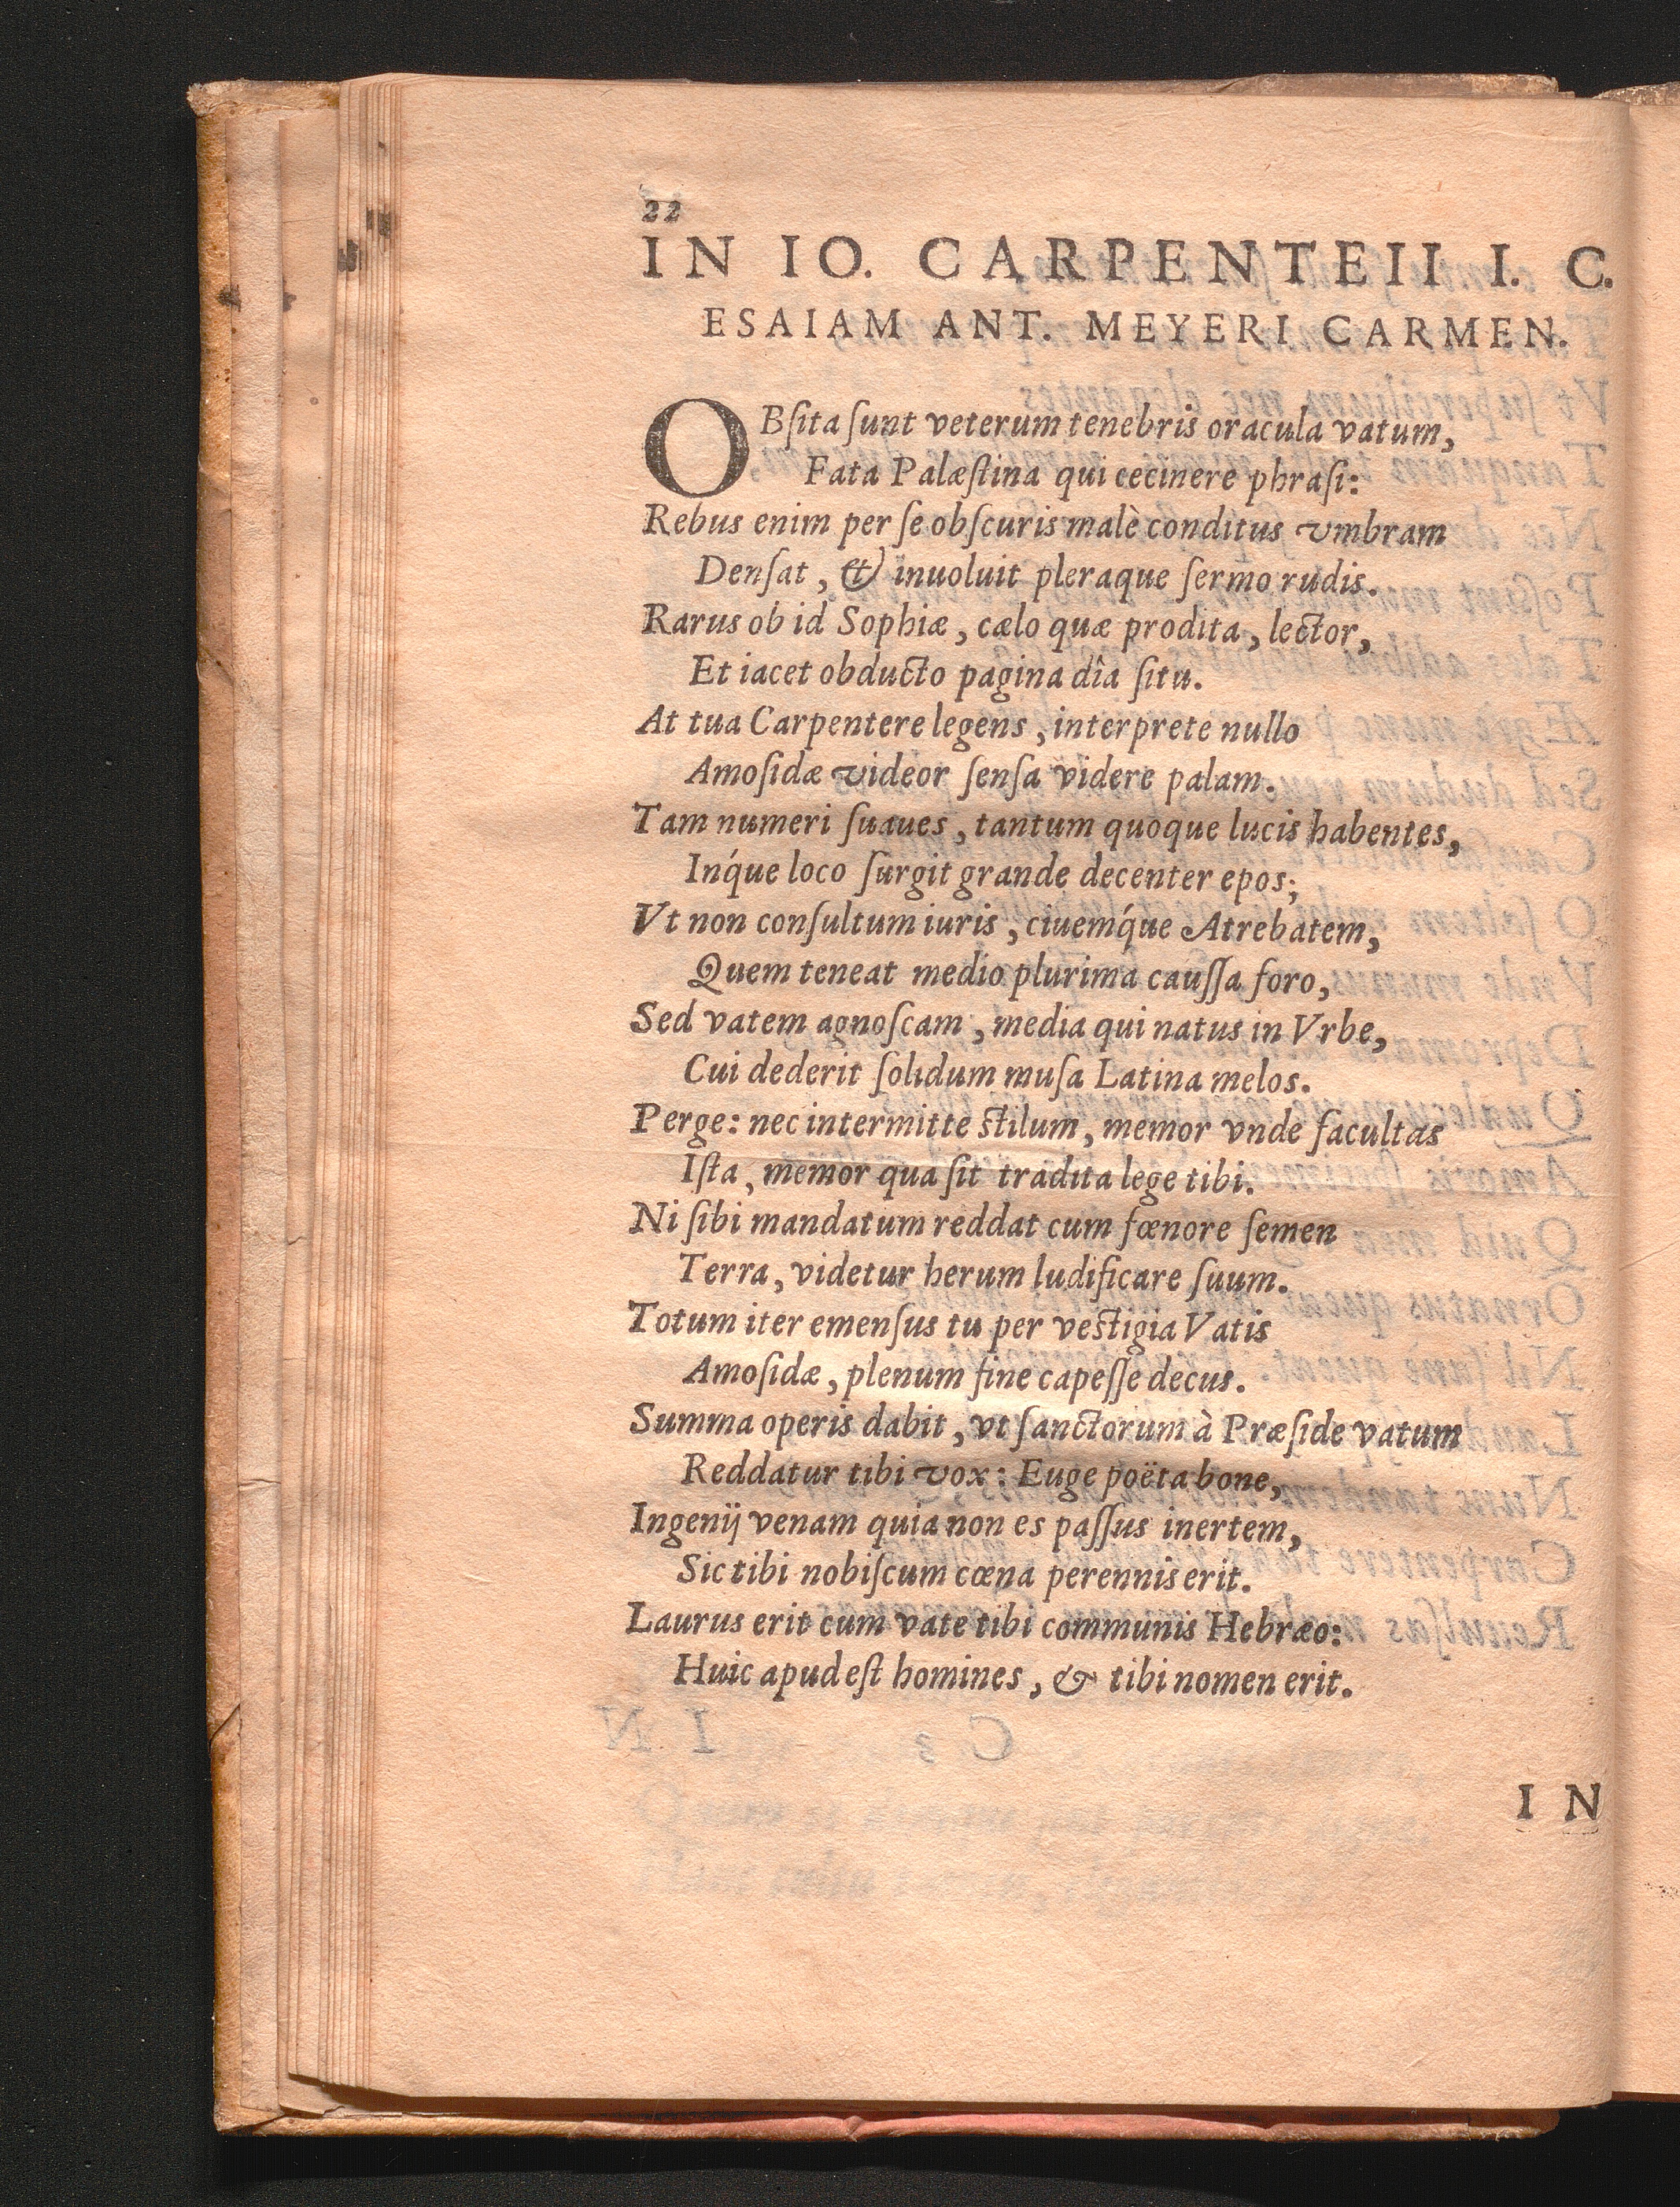 22
IN IO. CARPENTEII I. C.
ESAIAM ANT. MEYERI CARMEN.
OBſita ſunt veterum tenebris oracula vatum,
Fata Palæſtina qui cecinere phraſi:
Rebus enim per ſe obſcuris malè conditus vmbram
Denſat, & inuoluit pleraque ſermo rudis.
Rarus ob id Sophiæ, cælo quæ prodita, lector,
Et iacet obducto pagina dîa ſitu.
At tua Carpentere legens, interprete nullo
Amoſidæ videor ſenſa videre palam.
Tam numeri ſuaues, tantum quoque lucis habentes,
Inq́ue loco ſurgit grande decenter epos;
Vt non conſultum iuris, ciuemq́ue Atrebatem,
Quem teneat medio plurima cauſſa foro,
Sed vatem agnoſcam, media qui natus in Vrbe,
Cui dederit ſolidum muſa Latina melos.
Perge: nec intermitte ſtilum, memor vnde facultas
Iſta, memor qua ſit tradita lege tibi.
Ni ſibi mandatum reddat cum fœnore ſemen
Terra, videtur herum ludificare ſuum.
Totum iter emenſus tu per veſtigia Vatis
Amoſidæ, plenum fine capeſſe decus.
Summa operis dabit, vt ſanctorum à Præſide vatum
Reddatur tibi vox: Euge poëta bone,
Ingenij venam quia non es paſſus inertem,
Sic tibi nobiſcum cœna perennis erit.
Laurus erit cum vate tibi communis Hebræo:
Huic apud eſt homines, & tibi nomen erit.
IN